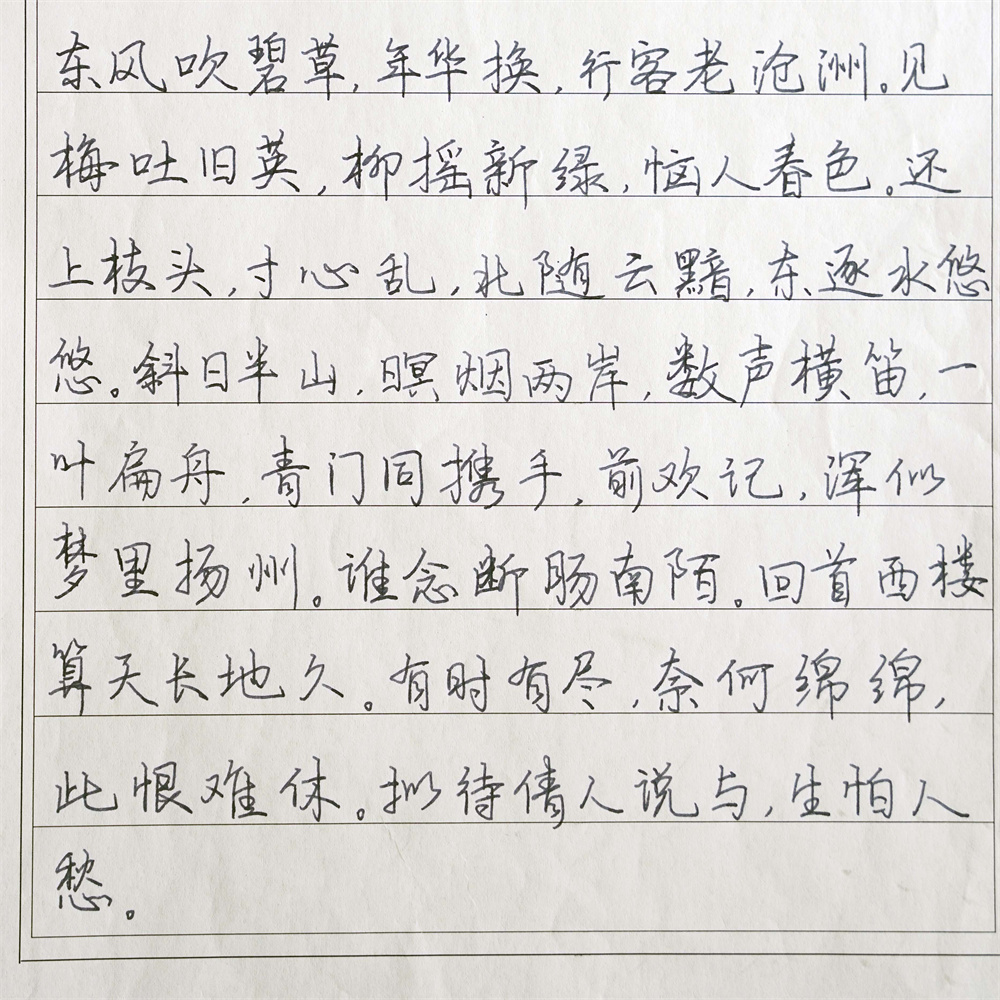 东风吹碧草,年华换,行客老沧洲。见
梅吐旧英,柳摇新绿,恼人春色。还
上枝头,寸心乱,北随云黯,东逐水悠
悠。斜日半山,暝烟两岸,数声横笛,一
叶扁舟,青门同携手,前欢记,浑似
梦里扬州。谁念断肠南陌。回首西楼
算天长地久。有时有尽,奈何绵绵,
此恨难休。拟待倩人说与,生怕人
愁。